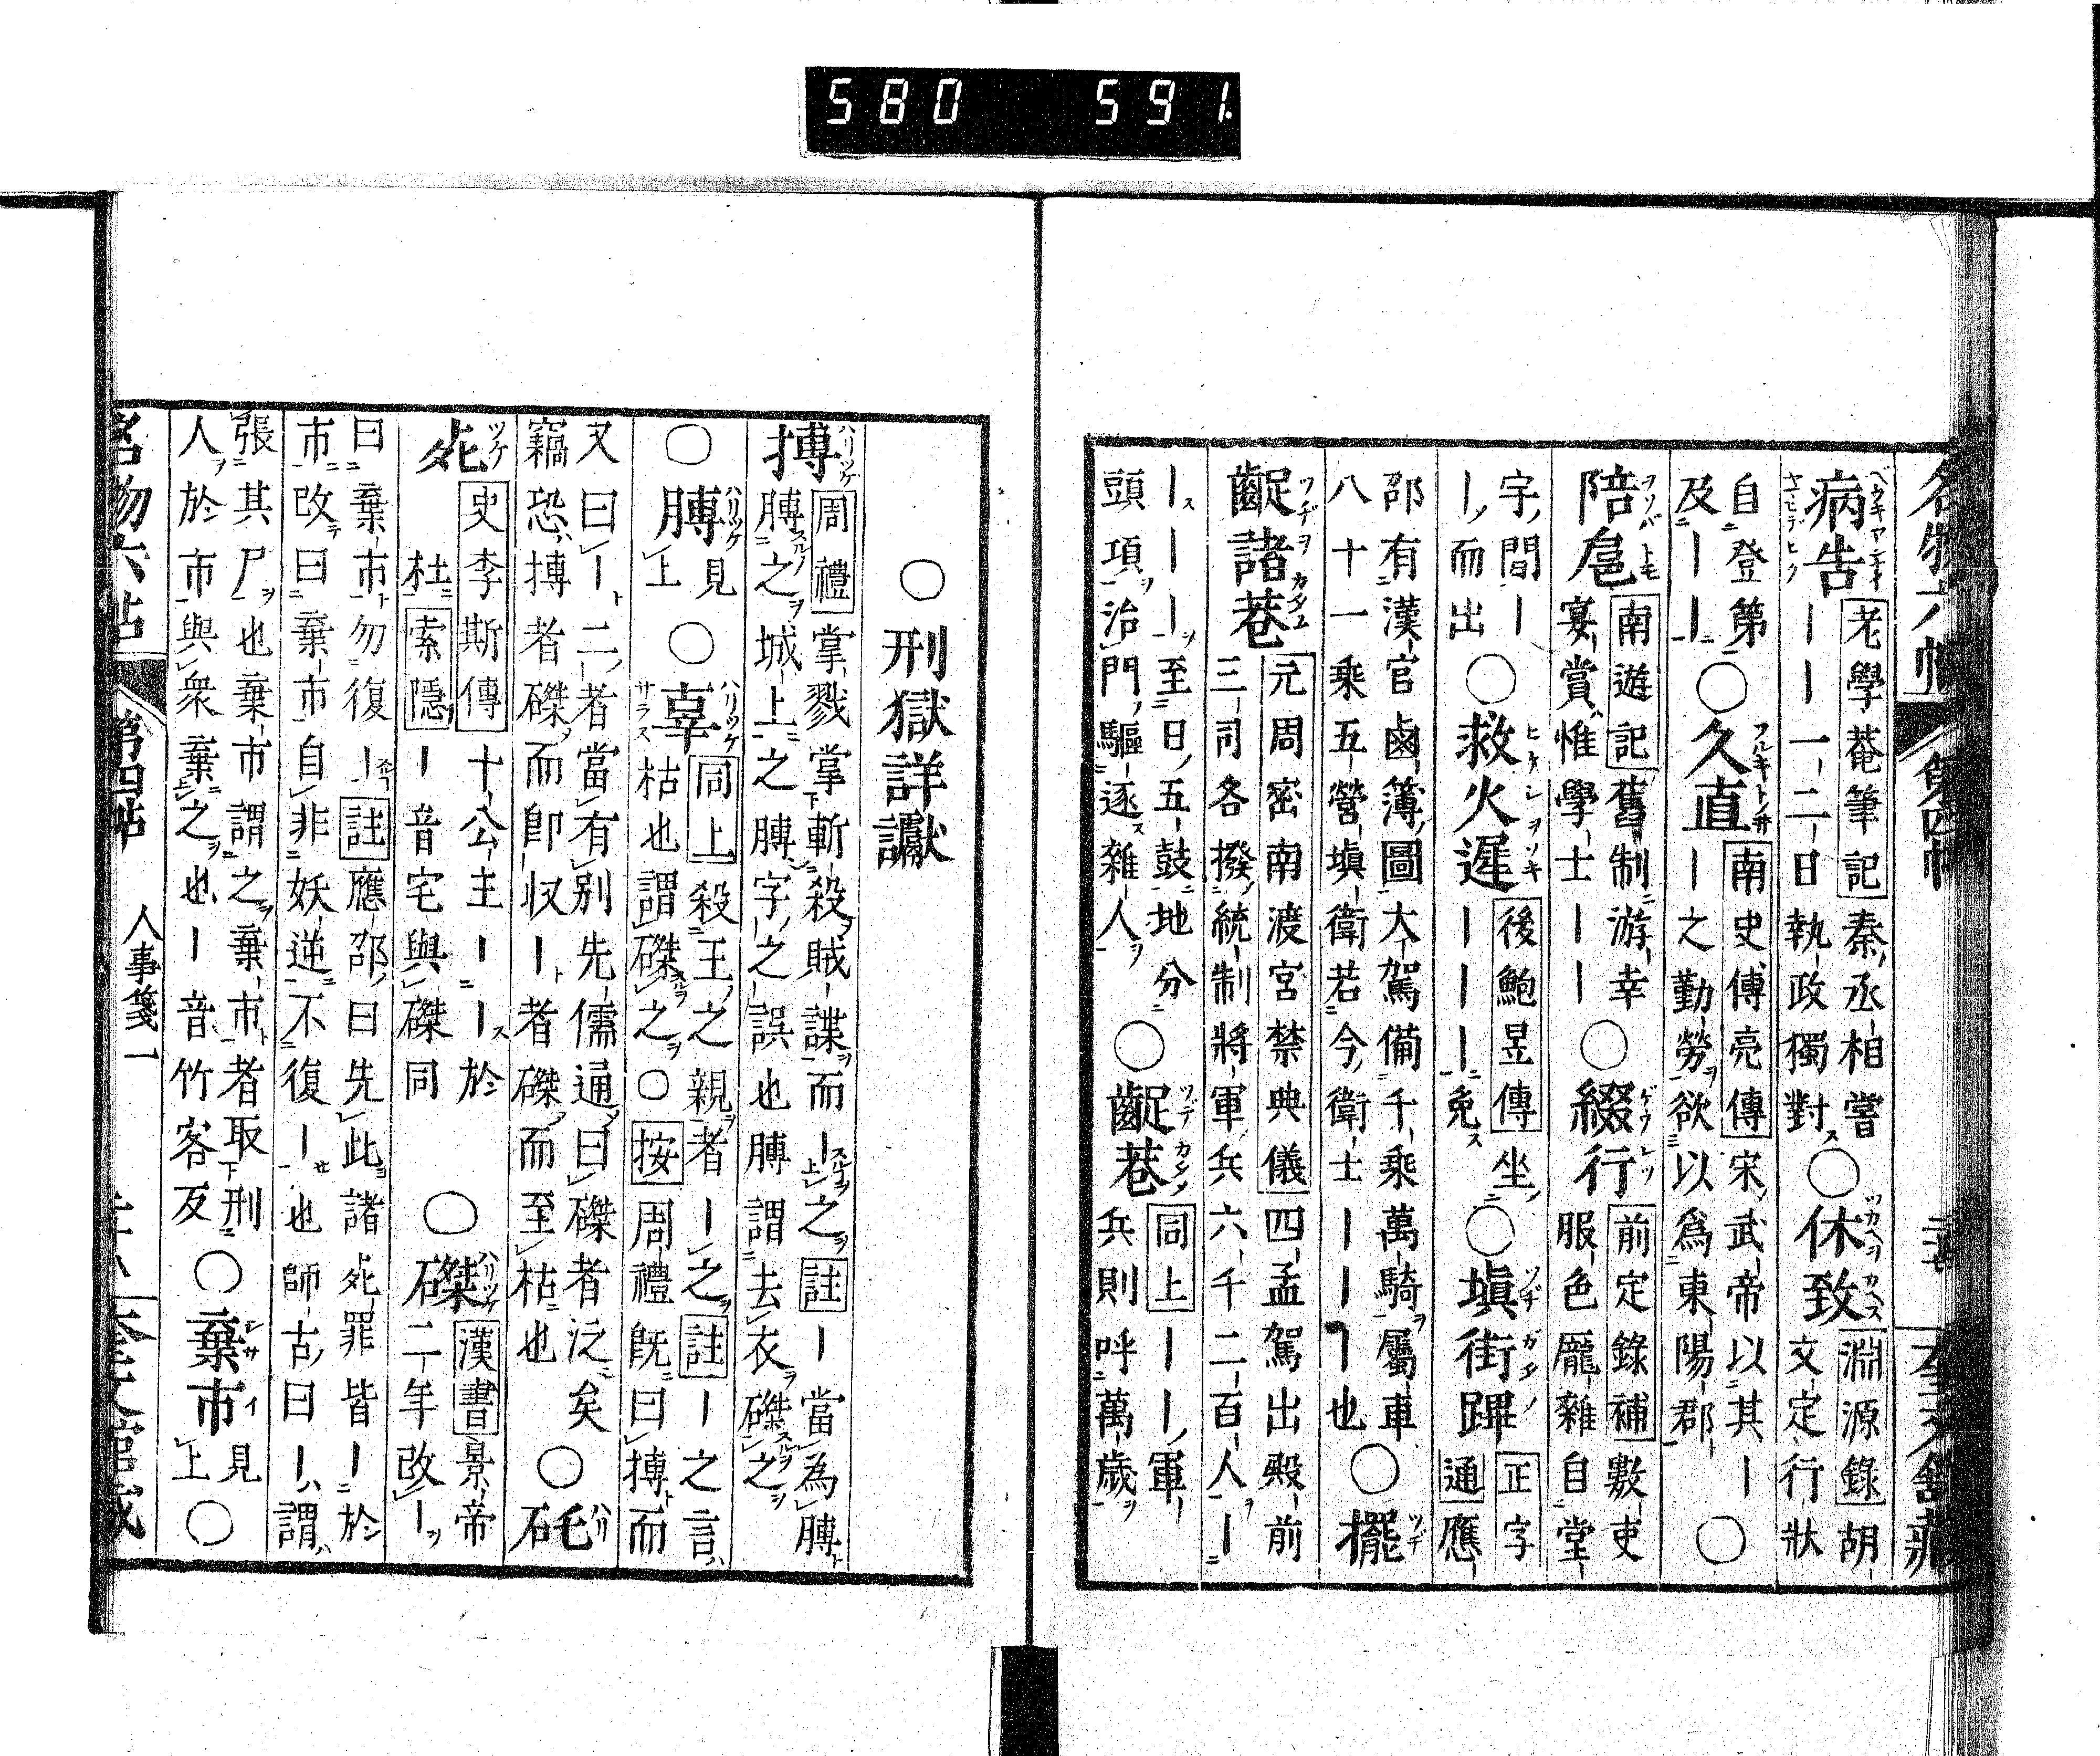 580 591.
名物六帖 第四帖 奎文舘藏
病告 老學菴筆記 秦丞相嘗
｜｜一二日執政獨對○休致 淵源錄 胡文定行狀
自登第
及｜｜｜○久直 南史傅亮傳 宋武帝以其｜
｜之勤勞欲以爲東陽郡○
陪扈 南遊記 舊制游幸
宴賞惟學士｜｜○綴行 前定錄補 敷吏
服色厖雜自堂
字間｜
｜而出○救火遲 後鮑昱傳 坐
｜｜｜免○塡街蹕 正字通 應
邵有漢官鹵簿圖大駕備千乘萬騎屬車
八十一乘五營塡衛若今衛士｜｜也○擺
齪諸巷 元周密南渡宮禁典儀 四孟駕出殿前
三司各撥統制將軍兵六千二百人｜
｜｜｜至日五鼓地分
頭項治門驅逐雜人○齪巷 同上 ｜｜軍
兵則呼萬歲
○刑獄詳讞
搏 周禮 掌戮掌斬殺賊諜而｜之 註 ｜當為膊
膊之城上之膊字之誤也膊謂去衣磔之
○膊 見上○辜 同上 殺王之親者｜之 註 ｜之言
枯也謂磔之○按 周禮既曰搏而
又曰｜二者當有別先儒通曰磔者泛矣
竊恐搏者磔而卽収｜者磔而至枯也○矺
死 史李斯傳 十公主｜｜於
杜 索隱 ｜音宅與磔同○磔 漢書 景帝
二年改｜
曰棄市勿復｜ 註 應邵曰先此諸死罪皆｜於
市改曰棄市自非妖逆不復｜也師古曰｜謂
張其尸也棄市謂之棄市者取刑
人於市與衆棄之也｜音竹客反○棄市 見上○
名物六帖 第四帖 人事箋一